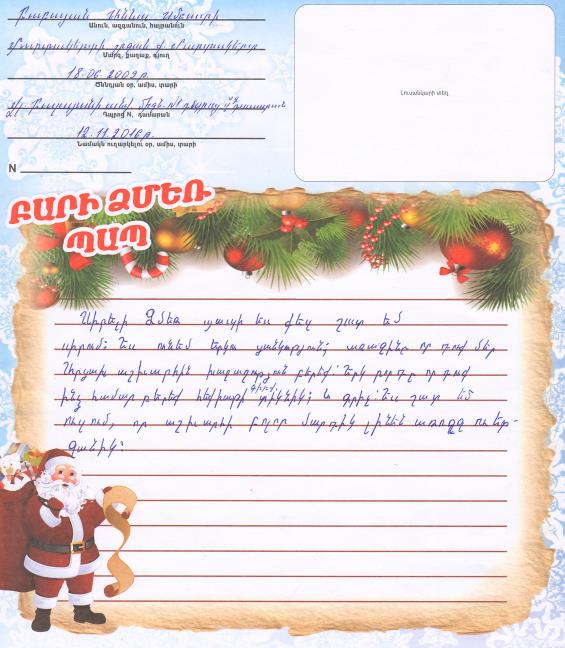 Բաբայան Աննա Ամետի
Անուն, ազգանուն, հայրանուն
Մարտակերտի շրջան ք. Մարտակերտ
Մարզ, քաղաք, գյուղ
18.06.2009թ.
Ծննդյան օր, ամիս, տարի
N1
Դպրոց N, դասարան
12.11.2016թ.
Նամակն ուղարկելու օր, ամիս, տարի
N
Լուսանկարի տեղ
ԲԱՐԻ ՁՄԵՌ
ՊԱՊ
Սիրելի Ձմեռ պապի ես քեզ շատ եմ
սիրում: Ես ունեմ երկու ցանկություն; առաջինը որ դուք մեր
աշխարհին խաղաղություն բերեք: Երկրորդը որ դուք
ինձ համար բերեք հեքիաթի գիրք տիկնիկ; և գրիչ: Ես շատ եմ
ուզում, որ աշխարհի բոլոր մարդիկ լինեն առողջ ու եր-
ջանիկ: